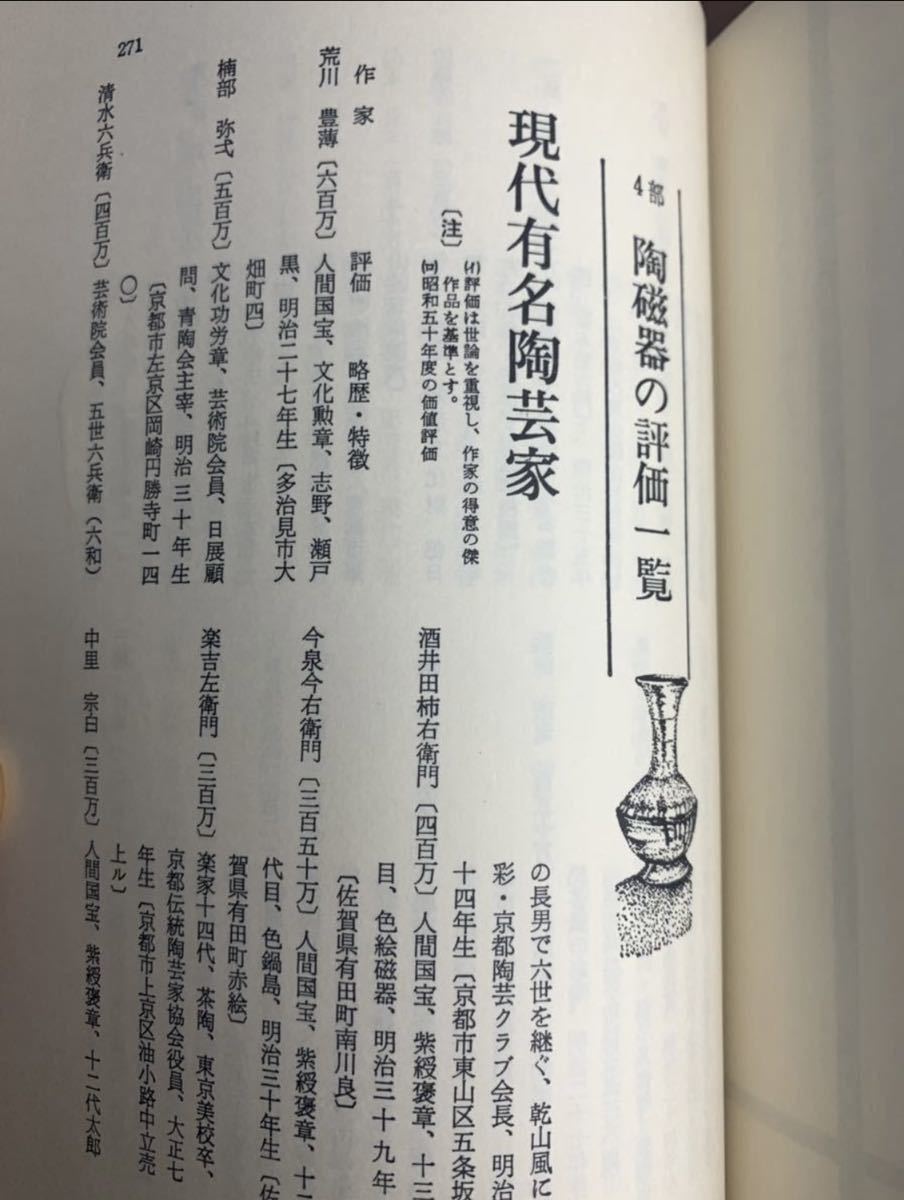 4部 陶磁器の評価一覧
現代有名陶芸家
〔注〕
(イ)評価は世論を重視し、作家の得意の傑
作品を基準とす。
(ロ)昭和五十年度の価値評価
作家 評価 略歴・特徴
荒川 豊薄〔六百万〕人間国宝、文化勲章、志野、瀬戸
黒、明治二十七年生〔多治見市大
畑町四〕
楠部 弥弌〔五百万〕文化功労章、芸術院会員、日展顧
問、青陶会主宰、明治三十年生
〔京都市左京区岡崎円勝寺町一四
〇〕
清水六兵衛〔四百万〕芸術院会員、五世六兵衛(六和)
の長男で六世を継ぐ、乾山風に
彩・京都陶芸クラブ会長、明治
十四年生〔京都市東山区五条坂
酒井田柿右衛門〔四百万〕人間国宝、紫綬褒章、十三
目、色絵磁器、明治三十九年
〔佐賀県有田町南川良〕
今泉今右衛門〔三百五十万〕人間国宝、紫綬褒章、十二
代目、色鍋島、明治三十年生〔佐
賀県有田町赤絵〕
楽吉左衛門〔三百万〕楽家十四代、茶陶、東京美校卒、
京都伝統陶芸家協会役員、大正七
年生〔京都市上京区油小路中立売
上ル〕
中里 宗白〔三百万〕人間国宝、紫綬褒章、十二代太郎
271